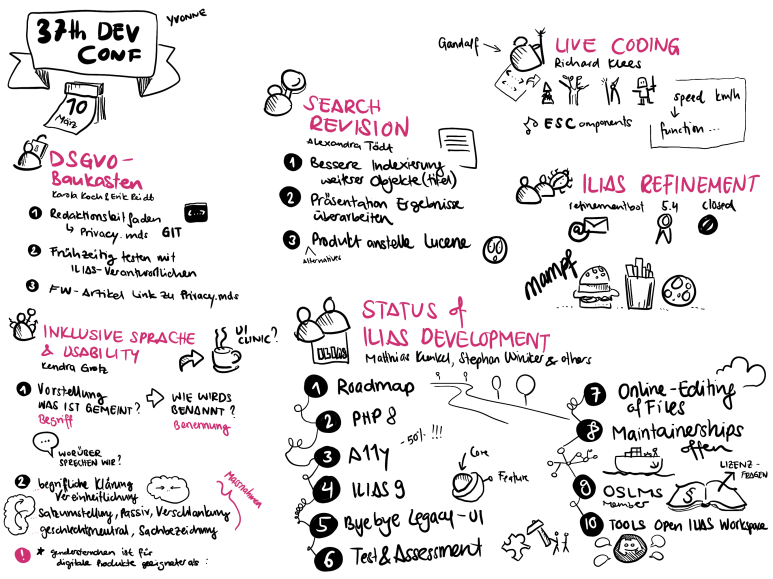 37th DEV
CONF
YVONNE
10
März
DSGVO-
Baukasten
1 Redaktionsleitfaden
Privacy.mds GIT
2 Frühzeitig testen mit
ILIAS-Verantwortlichen
3 FW-Artikel Link zu Privacy.mds
INKLUSIVE SPRACHE
& USABILITY
Kendra Grotz
UI
CLINIC?
1 Vorstellung
WAS IST GEMEINT?
Begriff
WIE WIRDS
BENANNT?
Benennung
WORÜBER
SPRECHEN WIR?
2 begriffliche Klärung
Vereinheitlichung
Massnahmen
Satzumstellung, Passiv, Verschlankung
geschlechtneutral, Sachbezeichnung
! * genderstern
ist für
digitale Produkte geeigneter als :
SEARCH
REVISION
Alexandra Tödt
1 Bessere Indexierung
weiterer Objekte (titel)
2 Präsentation Ergebnisse
überarbeiten
3 Produkt anstelle Lucene
Alternatives
Gandalf
LIVE CODING
Richard Klees
ESC components
speed km/h
function ...
ILIAS REFINEMENT
refinementbot
5.4
closed
mampf
STATUS of
ILIAS DEVELOPMENT
Matthias Kunkel, Stephan Winiker & others
ILIAS
1 Roadmap
2 PHP 8
3 A11y
-50% !!!
4 ILIAS 9
Core
Feature
5 Bye bye Legacy-UI
6 Test & Assessment
7 Online-Editing
of Files
8 Maintainerships
offen
9 OSLMS
Member
§
LIZENZ-
FRAGEN
10 TOOLS Open ILIAS Workspace